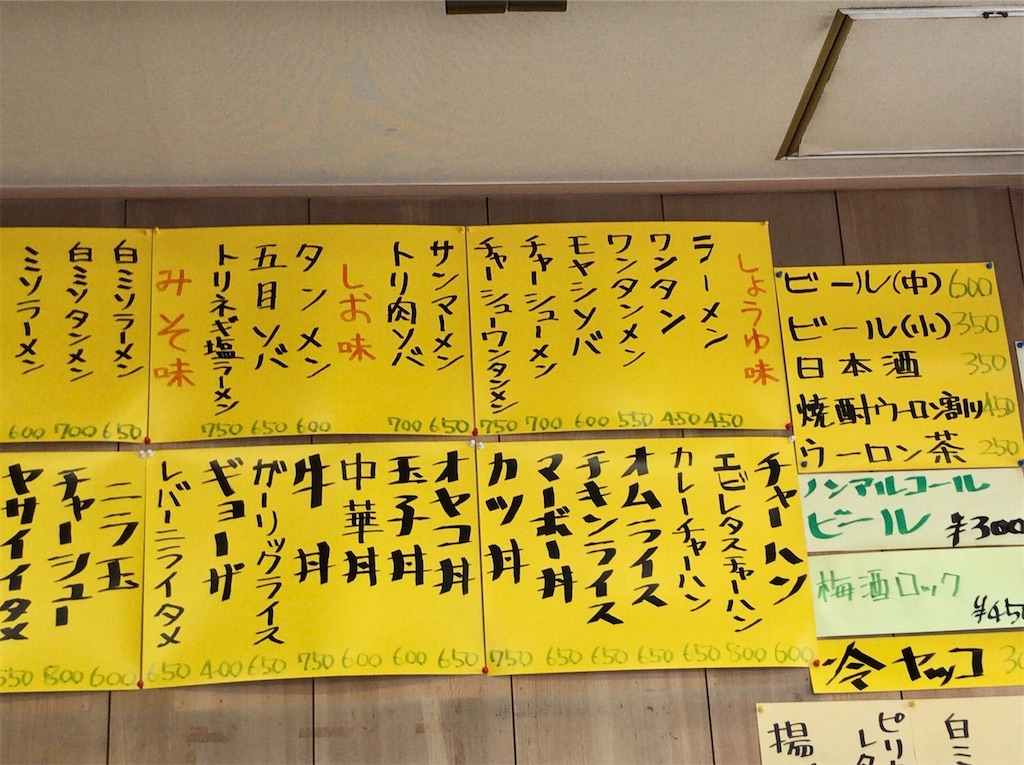 しょうゆ味
ラーメン 450
ワンタン 450
ワンタンメン 550
モヤシソバ 600
チャーシューメン 700
チャーシューワンタンメン 750
サンマーメン 650
トリ肉ソバ 700
しお味
タンメン 600
五目ソバ 650
トリネギ塩ラーメン 750
みそ味
白ミソラーメン 650
白ミソタンメン 700
ミソラーメン 600
チャーハン 600
エビレタスチャーハン 800
カレーチャーハン 650
オムライス 650
チキンライス 650
マーボー丼 650
カツ丼 750
オヤコ丼 650
玉子丼 600
中華丼 600
牛丼 750
ガーリックライス 650
ギョーザ 400
レバーニライタメ 650
ニラ玉 600
チャーシュー 800
ヤサイイタメ 550
ビール(中) 600
ビール(小) 350
日本酒 350
焼酎ウーロン割り 450
ウーロン茶 250
ノンアルコール
ビール ¥300
梅酒ロック
¥450
冷ヤッコ
白ミ
ピリ
レタ
揚